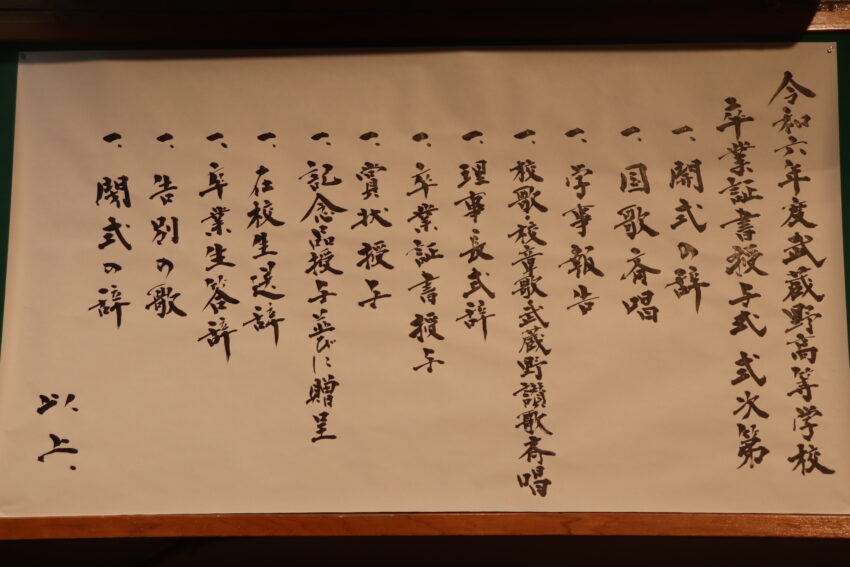 令和六年度武蔵野高等学校
卒業証書授与式 式次第
一、開式の辞
一、国歌斉唱
一、学事報告
一、校歌・校章歌武蔵野讃歌斉唱
一、理事長式辞
一、卒業証書授与
一、賞状授与
一、記念品授与並びに贈呈
一、在校生送辞
一、卒業生答辞
一、告別の歌
一、閉式の辞
以上